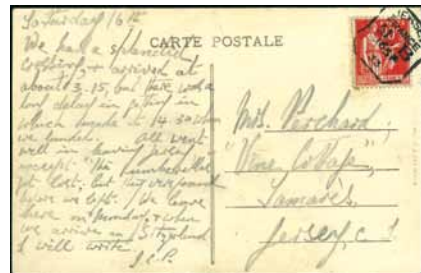 Saturday 16th
We had a splendid
crossing & arrived at
about 3.15, but there was a
long delay in getting in
which made it 14.30 when
we landed. All went
well in leaving Jersey
except "the umbrella
got lost, but was found
before we left. We leave
here on Monday, & when
we arrive in Switzerland
I will write
CARTE POSTALE
Mrs. Perchard,
"Vine Cottage",
Samarès,
Jersey, C.I
JERSEY
FRANCE